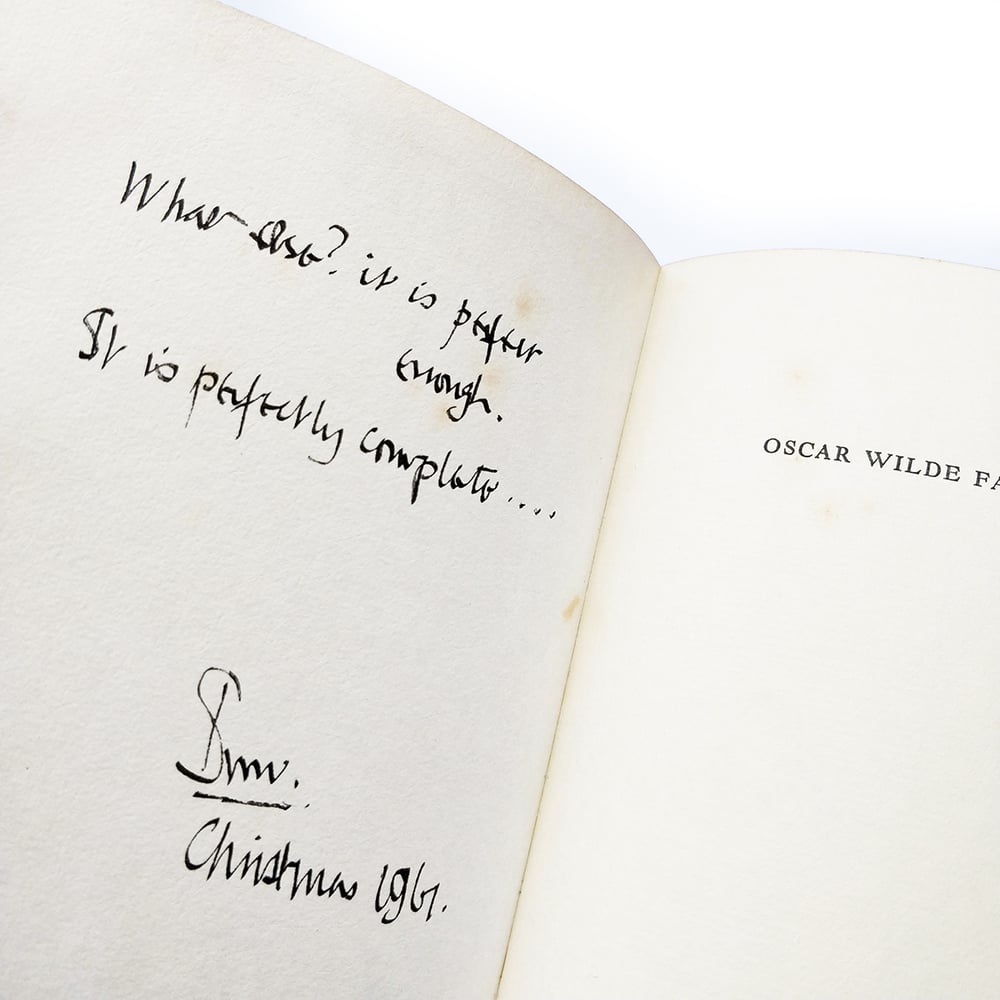 What else? it is perfect
enough.
It is perfectly complete ....
Christmas 1961.
OSCAR WILDE FA